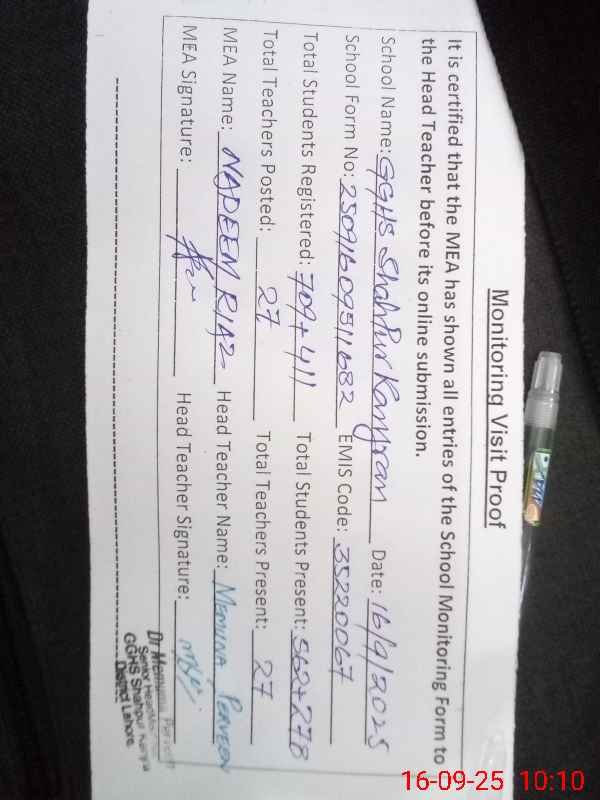 Monitoring Visit Proof
It is certified that the MEA has shown all entries of the School Monitoring Form to
the Head Teacher before its online submission.
School Name: GGHS Shahpur Kanjran Date: 16/9/2025
School Form No: 250916095111682 EMIS Code: 35220067
Total Students Registered: 709+411 Total Students Present: 562+278
Total Teachers Posted: 27 Total Teachers Present: 27
MEA Name: NADEEM RIAZ Head Teacher Name: Memuna Perveen
MEA Signature: Head Teacher Signature:
Dr Memuna Perveen
Senior
GGHS Shahpur
District Lahore.
16-09-25 10:10